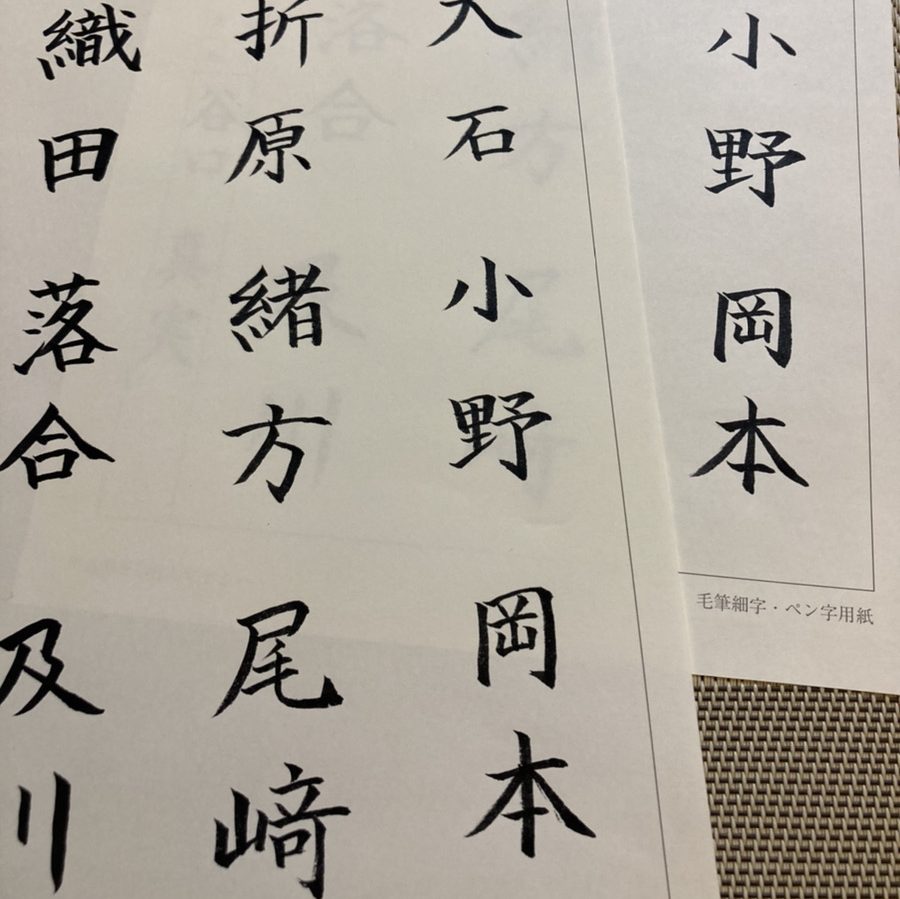 小野 岡本
毛筆細字・ペン字用紙
大石 小野 岡本
折原 緒方 尾﨑
織田 落合 及川